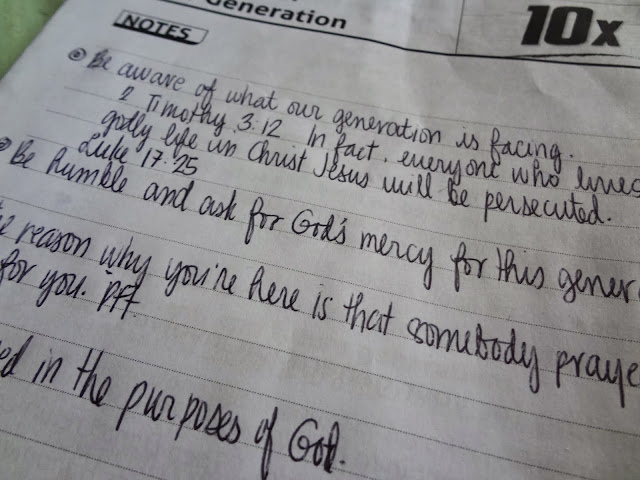 Generation
10x
NOTES
Be aware of what our generation is facing.
2 Timothy 3:12 In fact, everyone who lives
godly life in Christ Jesus will be persecuted.
Luke 17:25
Be humble and ask for God's mercy for this gener
e reason why you're here is that somebody praye
for you. PFT.
ed in the purposes of God.